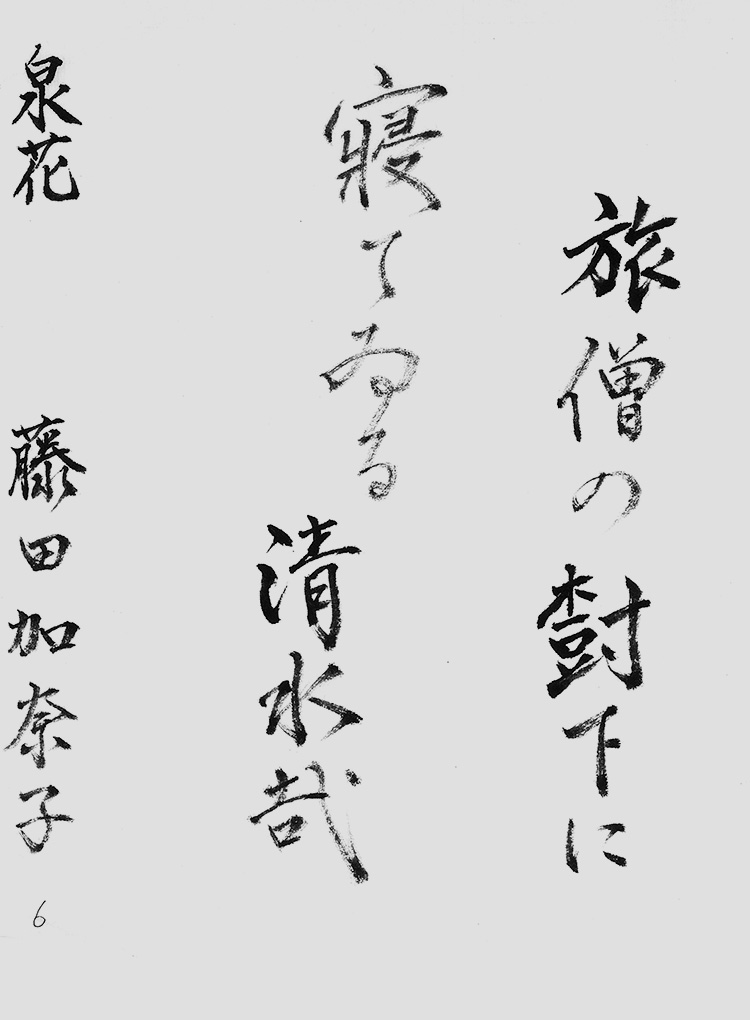 旅僧の樹下に
寝てゐる清水哉
泉花 藤田加奈子 6